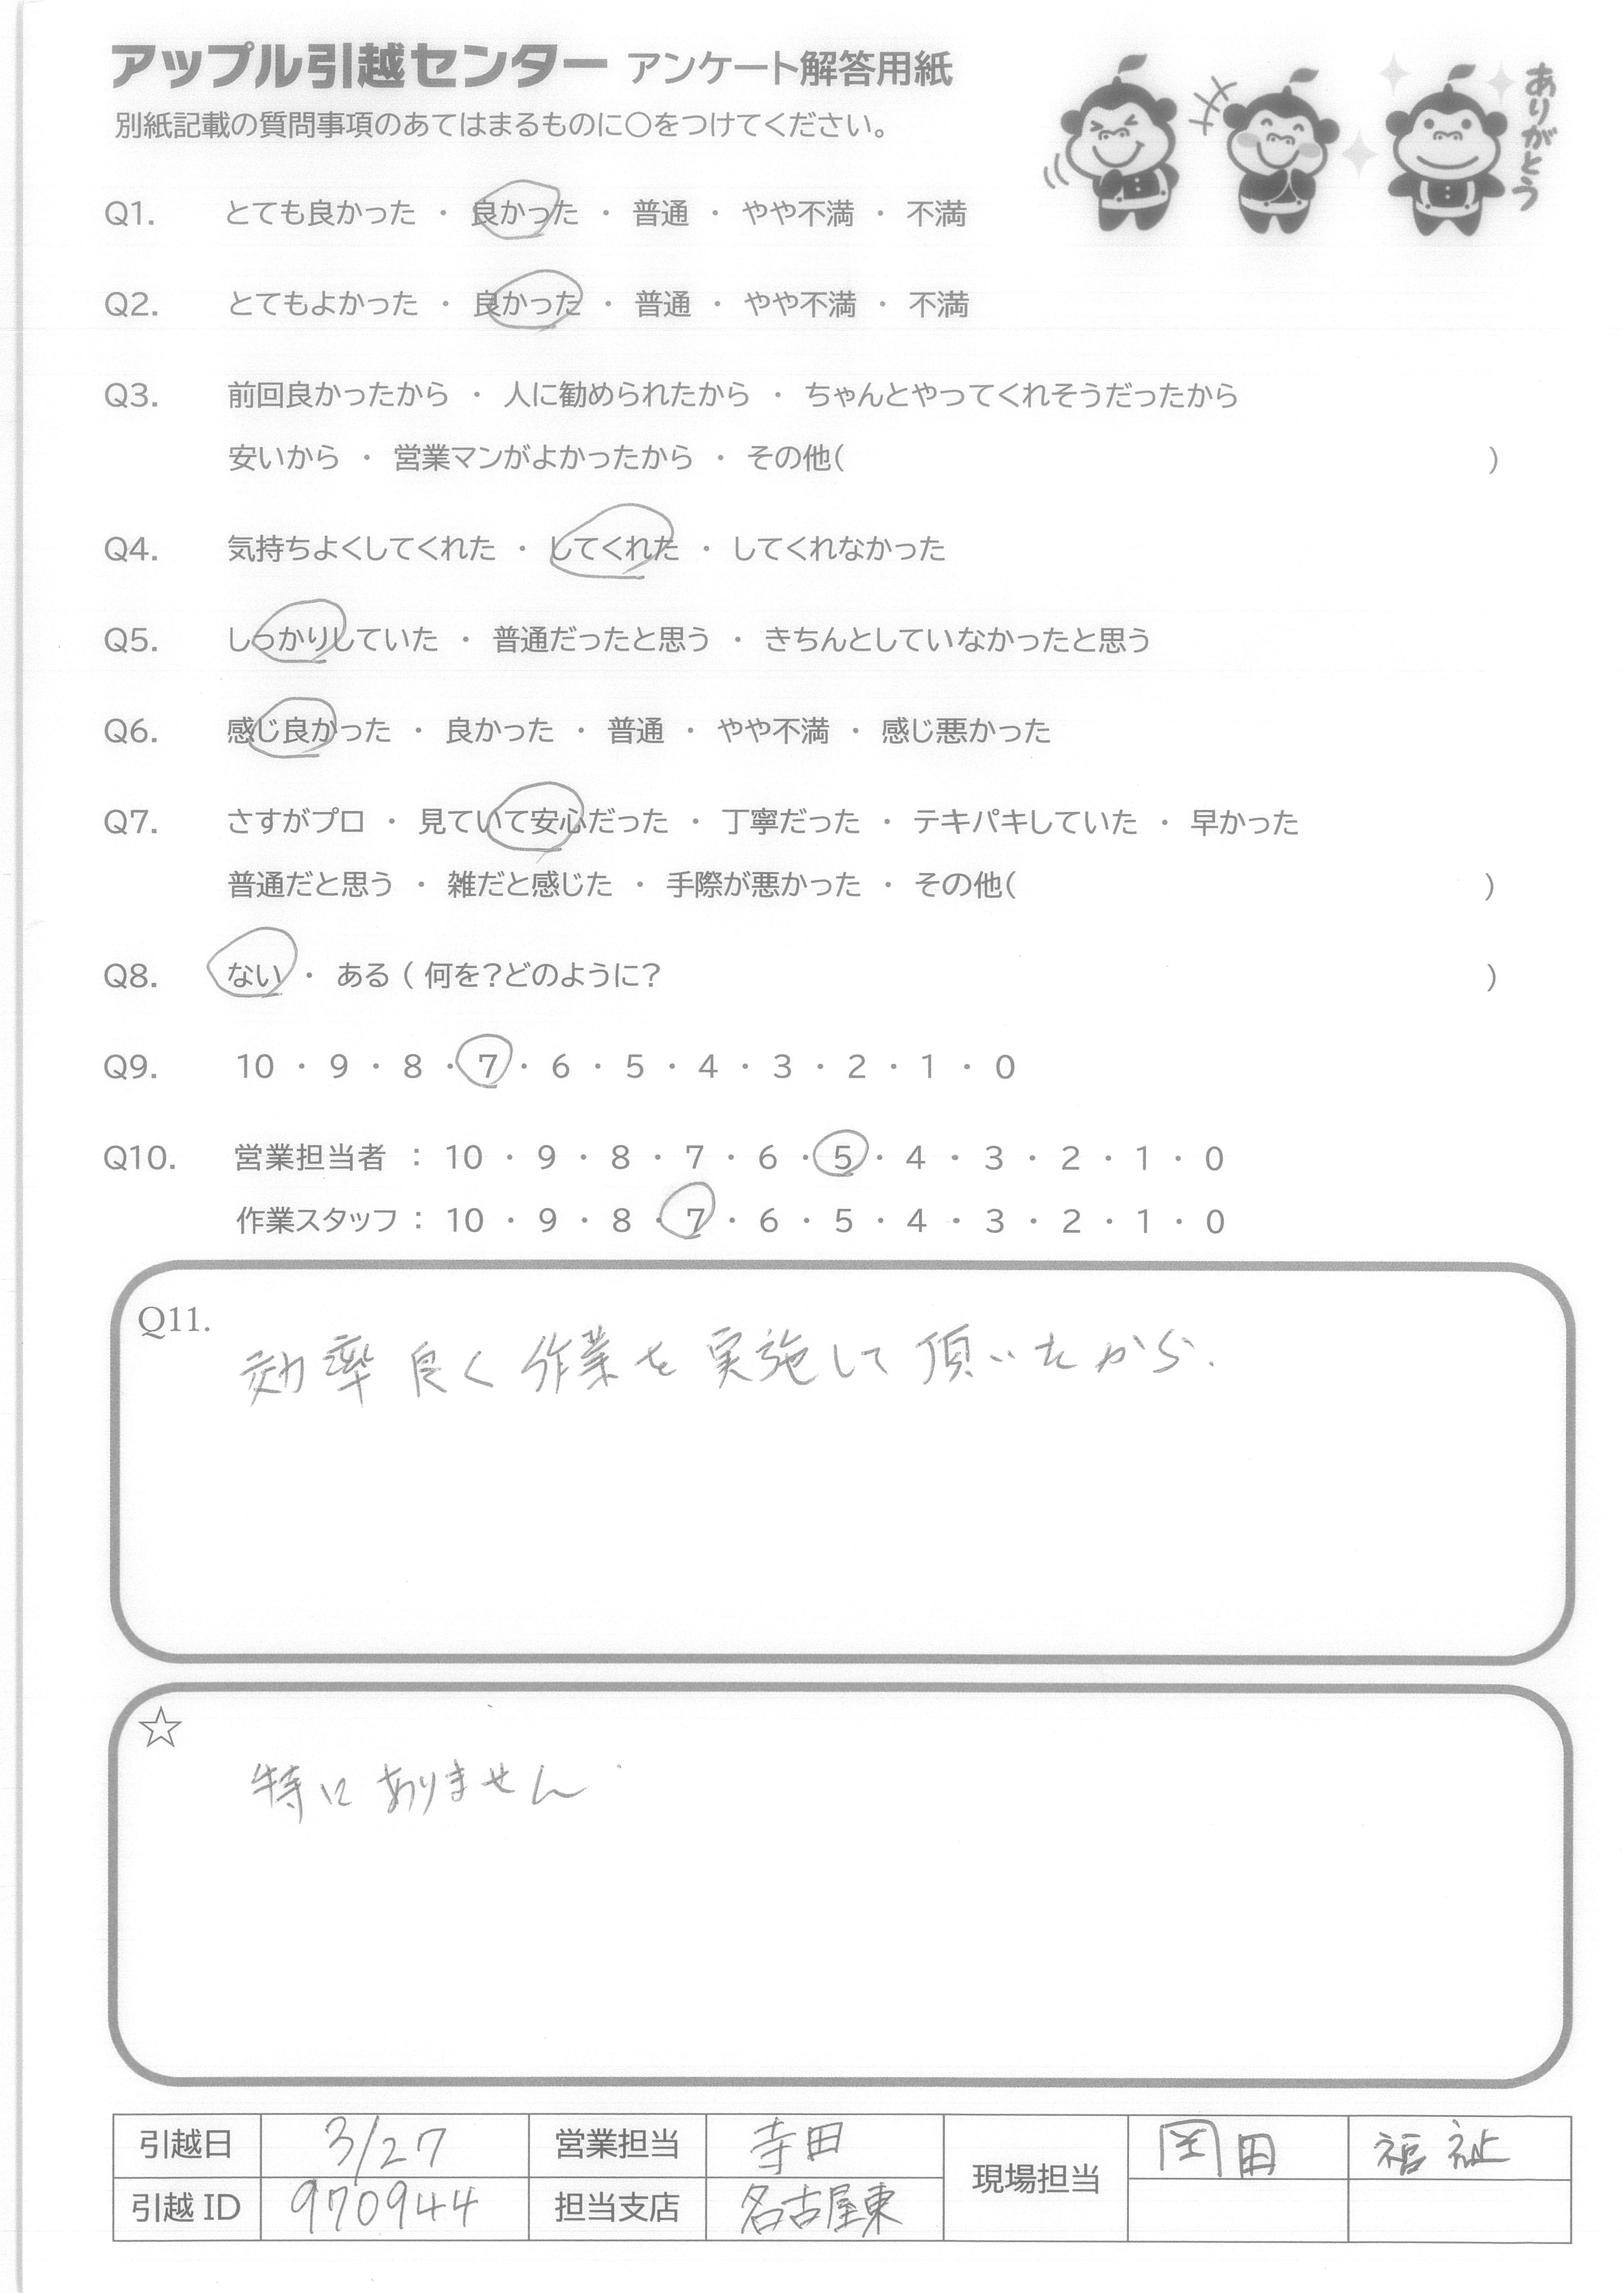 アップル引越センター アンケート解答用紙
別紙記載の質問事項のあてはまるものに○をつけてください。
ありがとう
Q1. とても良かった ・ 良かった ・ 普通 ・ やや不満 ・ 不満
Q2. とてもよかった ・ 良かった ・ 普通 ・ やや不満 ・ 不満
Q3. 前回良かったから ・ 人に勧められたから ・ ちゃんとやってくれそうだったから
安いから ・ 営業マンがよかったから ・ その他( )
Q4. 気持ちよくしてくれた ・ してくれた ・ してくれなかった
Q5. しっかりしていた ・ 普通だったと思う ・ きちんとしていなかったと思う
Q6. 感じ良かった ・ 良かった ・ 普通 ・ やや不満 ・ 感じ悪かった
Q7. さすがプロ ・ 見ていて安心だった ・ 丁寧だった ・ テキパキしていた ・ 早かった
普通だと思う ・ 雑だと感じた ・ 手際が悪かった ・ その他( )
Q8. ない ・ ある ( 何を?どのように? )
Q9. 10 ・ 9 ・ 8 ・ 7 ・ 6 ・ 5 ・ 4 ・ 3 ・ 2 ・ 1 ・ 0
Q10. 営業担当者 : 10 ・ 9 ・ 8 ・ 7 ・ 6 ・ 5 ・ 4 ・ 3 ・ 2 ・ 1 ・ 0
作業スタッフ : 10 ・ 9 ・ 8 ・ 7 ・ 6 ・ 5 ・ 4 ・ 3 ・ 2 ・ 1 ・ 0
Q11.
効率良く作業を実施して頂いたから.
☆
特にありません
引越日 3/27 営業担当 寺田 現場担当 岡田 福祉
引越 ID 970944 担当支店 名古屋東